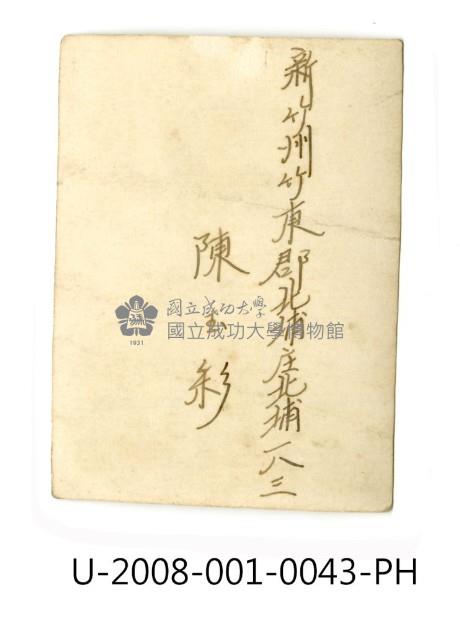 新竹州竹東郡北埔庄北埔一八三
陳玉彩
國立成功大學
國立成功大學博物館
1931
U-2008-001-0043-PH